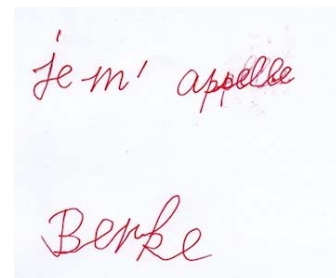 je m' appelle
Berke